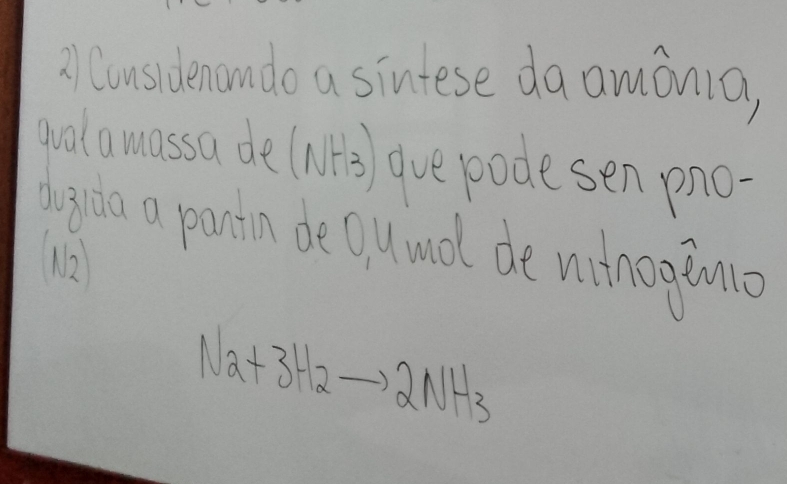 2) Considerando a síntese da amônia,
qual a massa de (NH3) que pode ser pro-
duzida a partir de 0,4 mol de nitrogênio
(N2)
N2+3H2→2NH3